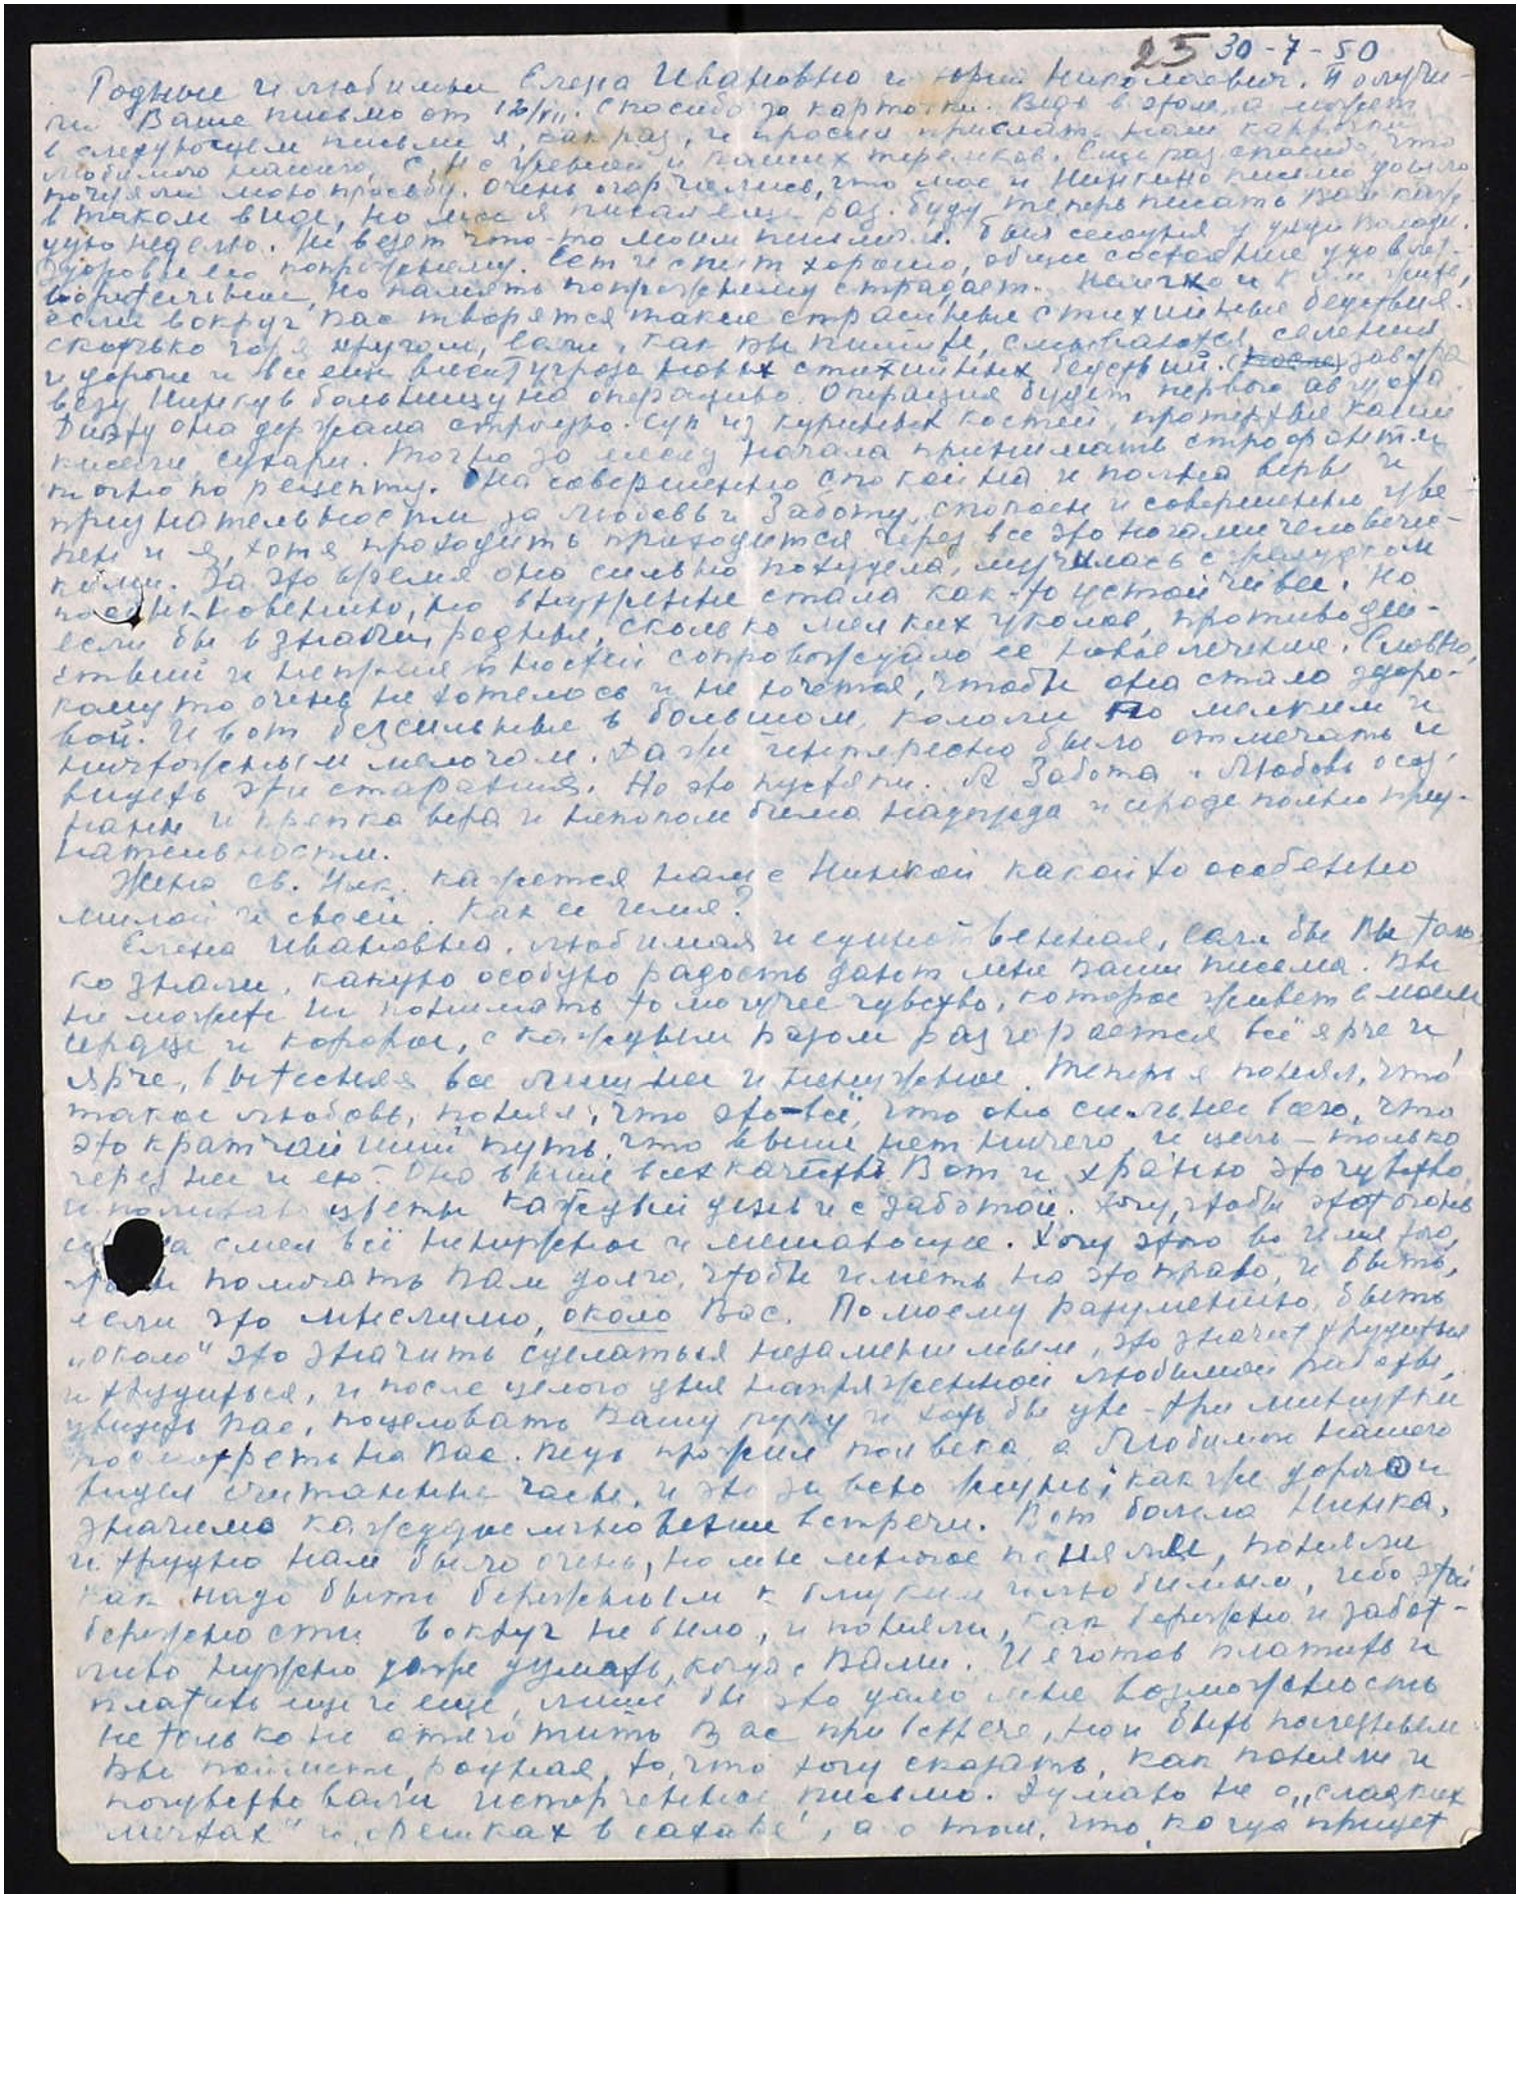 25 30-7-50
Родные и любимые Елена Ивановна и Юрий Николаевич. Получи-
ли Ваше письмо от 12/VII. Спасибо за карточки. Ведь в этом, а может
в следующем письме я, как раз, и просил прислать нам карточки
любимого нашего, С.Н. с Ураей и наших теремков. Еще раз спасибо, что
почуяли мою просьбу. Очень огорчились, что мое и Нинкино письмо дошло
в таком виде, но мы и писали еще раз. Буду теперь писать Вам каж-
дую неделю. Не везет что-то моим письмам. Был сегодня у дяди Володи.
Здоровье его попрежнему. Ест и спит хорошо, общее состояние удовлет-
ворительное, но память попрежнему страдает. Нелегко и к им жите,
если вокруг Вас творятся такие страшные стихийные бедствия.
сколько горя кругом, если, как Вы пишите, смываются селения
и дороги и все еще висит угроза новых стихийных бедствий. (после) завтра
везу Нинку в больницу на операцию. Операция будет первого августа.
Диэту она держала строгую. Суп из куриных костей, протертые каши
кисели, сухари. Точно за месяц начала принимать строфант и
точно по рецепту. Она совершенно спокойна и полна веры и
признательности за Любовь и Заботу, спокоен и совершенно уве-
рен и я, хотя проходить приходится через все это ногами человечес-
кими. За это время она сильно похудела, мучилась с желудком
необыкновенно, но внутренне стала как-то устойчивее. Но
если бы Вы знали, родные, сколько мелких уколов, противодей-
ствий и неприятностей сопровождало ее новое лечение. Словно,
кому то очень не хотелось и не хочется, чтобы она стала здоро-
вой. И вот безсильные в большом, кололи по мелким и
ничтожным мелочам. Даже интересно было отмечать и
видеть эти старания. Но это пустяки. А Забота и Любовь осоз-
наны и крепка вера и непоколебима надежда и сердце полно приз-
нательности.
Жена св. Ник. кажется нам с Нинкой какой то особенно
милой и своей. Как ее имя?
Елена Ивановна, любимая и единственная, если бы Вы толь-
ко знали, какую особую радость дают мне Ваши письма. Вы
не можете не понимать то могучее чувство, которое живет в моем
сердце и которое, с каждым разом разгорается всё ярче и
ярче, вытесняя все лишнее и ненужное. Теперь я понял, что
такое любовь, понял, что это-всё, что она сильнее всего, что
это кратчайший путь, что выше нет ничего, и цель - только
через нее и ею. Она выше всех качеств. Вот и храню это чувство
и поливаю цветы каждый день и с заботой. Хочу, чтобы этот огонь
смел всё ненужное и мешающее. Хочу этого во имя того,
чтобы помогать Вам долго, чтобы иметь на это право, и быть,
если это мыслимо, около Вас. По моему разумению, быть
„около" это значить сделаться незаменимым, это значит трудиться
и трудиться, и после целого дня напряженной любимой работы,
увидеть Вас, поцеловать Вашу руку и хоть бы две-три минутки
посмотреть на Вас. Ведь прожил пол века, а Любимого нашего
видел считанные часы, и это за всю жизнь; как же дорого и
значимо каждое мгновение встречи. Вот болела Нинка,
и трудно нам было очень, но мы многое поняли, поняли
как надо быть бережным к близким и любимым, ибо этой
бережности вокруг не было, и поняли, как бережно и забот-
ливо нужно даже думать, когда с Вами. И я готов платить и
платить еще и еще, лишь бы это дало мне возможность
не только не отяготить Вас при встрече, но и быть полезным.
Вы поймете, родная, то, что хочу сказать, как поняли и
почувствовали испорченное письмо. Думаю не о „сладких
мечтах" и „орешках в сахаре", а о том, что когда придет